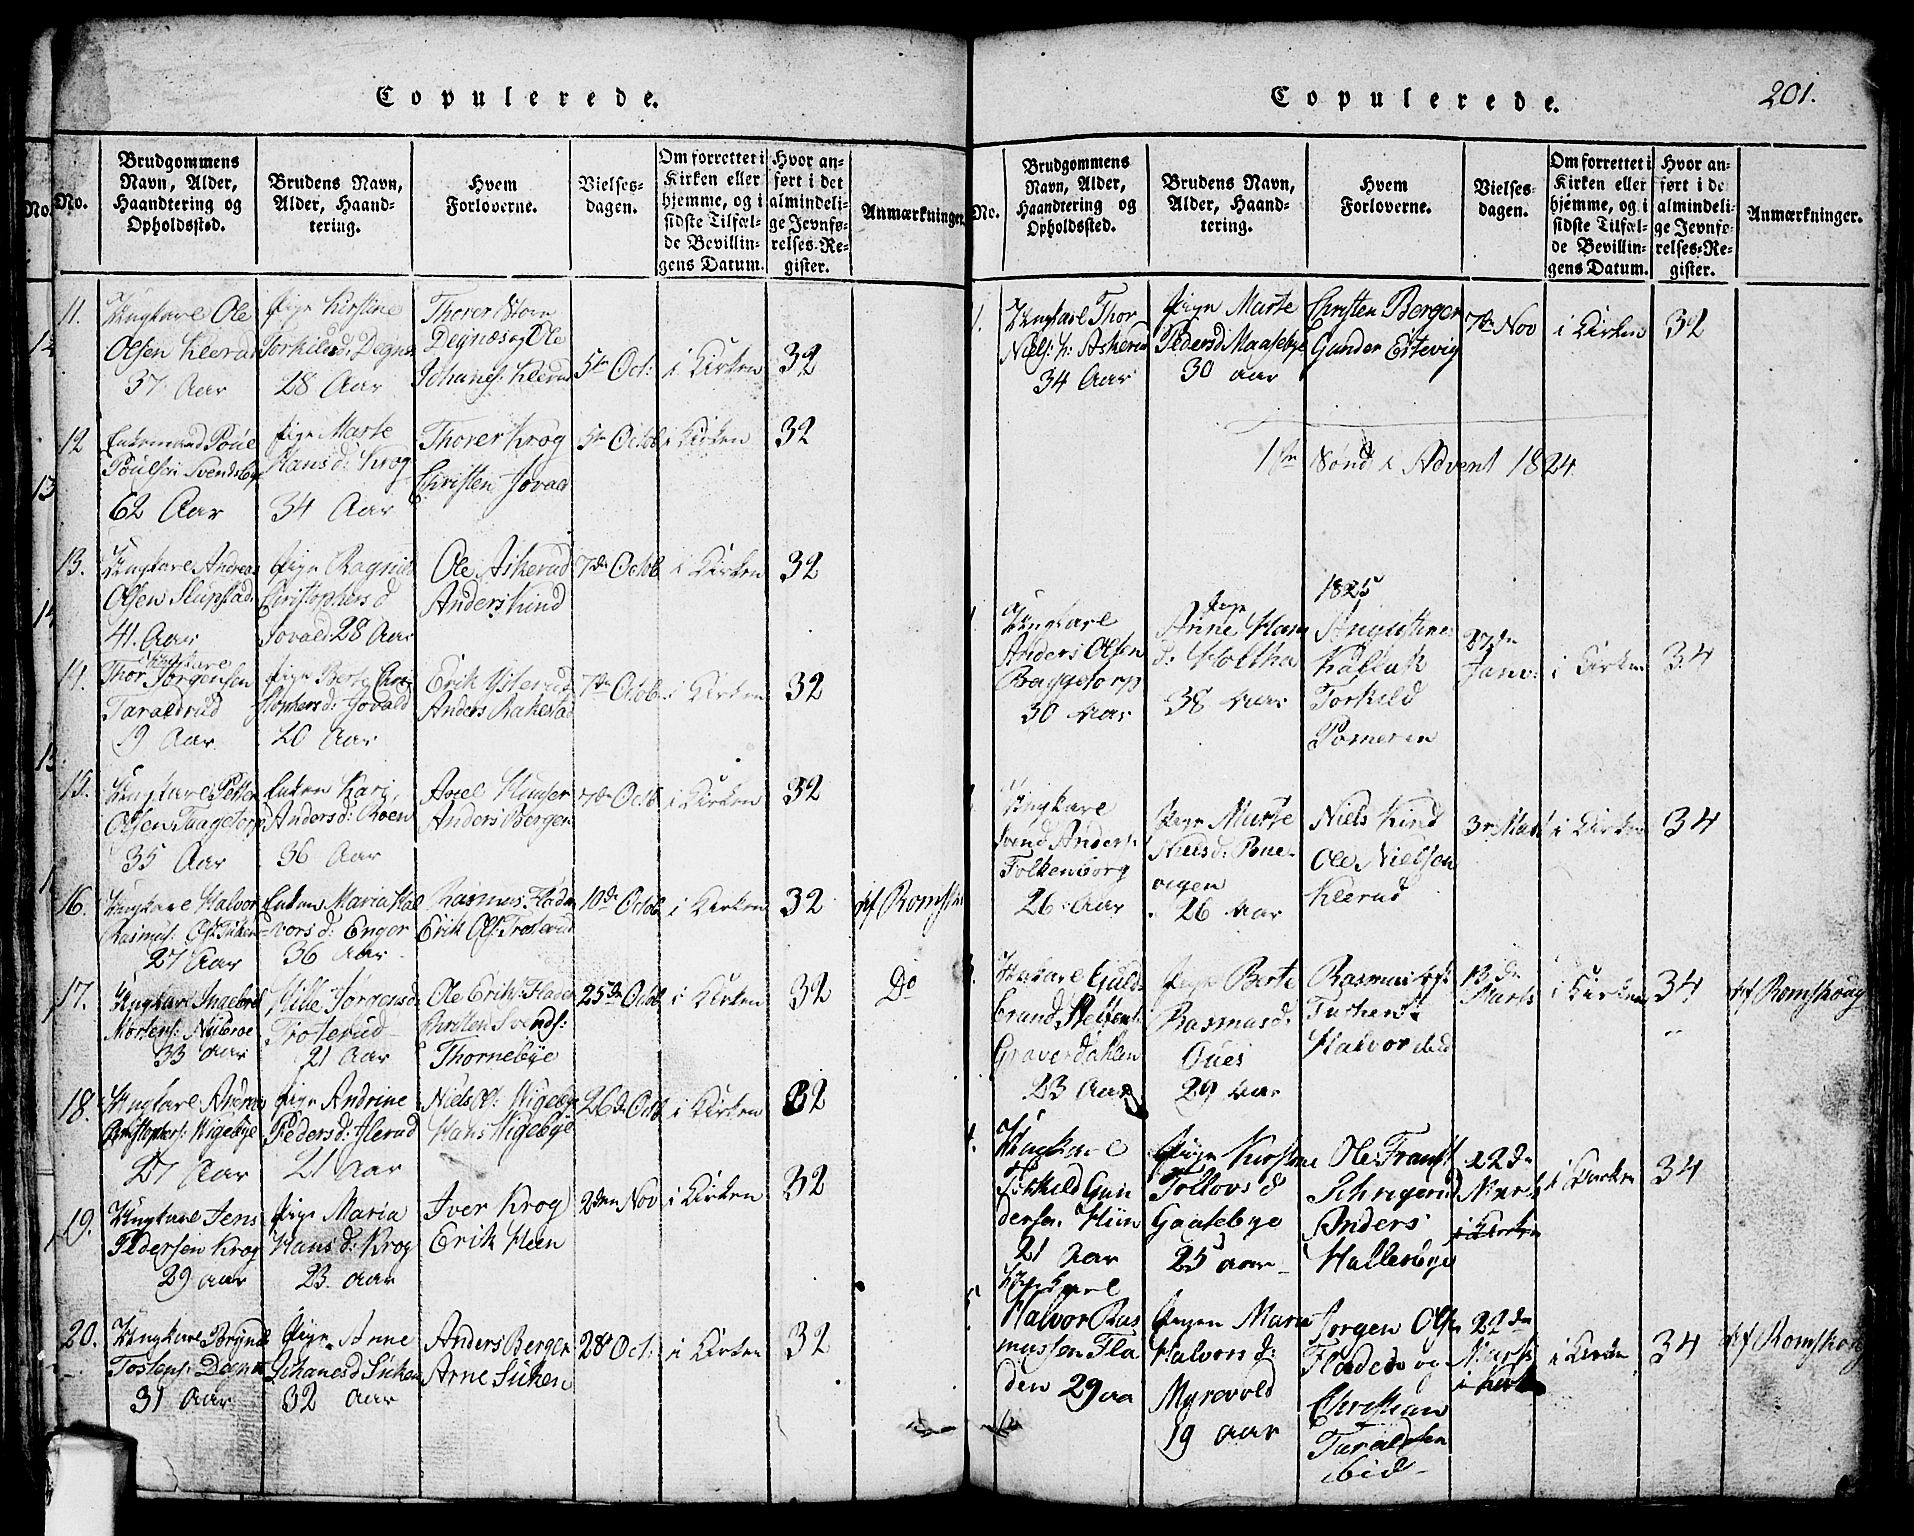 Copulerede.
No.
Brudgommens
Navn, Alder,
Haandtering og
Opholdssted.
Brudens Navn,
Alder, Haand-
tering.
Hvem
Forloverne.
Vielses-
dagen.
Om forrettet i
Kirken eller
hjemme, og i
sidste Tilfæl-
de Bevillin-
gens Datum.
Hvor an-
ført i det
almindeli-
ge Jevnfø-
relses-Re-
gister.
Anmærkninger.
11.
Ungkarl Ole
Olsen Klerud
37 Aar
Pige Kirstine
Torkilsd. Degnæs
28 Aar
Thorer Steen
Degnæs og Ole
Johanes: Klerud
5te Oct:
i Kirken
32
12
Enkemand Poul
Poulsen Svendsby
62 Aar
Pige Marte
Hans d: Krog
34 Aar
Thorer Krog
Christen Jovald
5te Octob
i Kirken
32
13.
Ungkarl Andreas
Olsen Slupstad
41. Aar
Pige Ragnild
Christophers d
Jovald 28 Aar
Ole Askerud
Anders kind
7de Octob
i Kirken
32
14.
Ungkarl
Thor Jorgensen
Taraldrud
19 Aar
Pige Berte Chri-
stophers d: Jovald
20 Aar
Erik Ysterud
Anders Rakestad
7de Octob
i Kirken
32
15.
Ungkarl Petter
Olsen Taagetorp
35 Aar
Enken Kari
Anders d: Roen
36 Aar
Axel
Anders Bergen
7de Octb
i Kirken
32
16.
Ungkarl Halvor
Rasmus:
27 Aar
Enken Maria Hal
vors d: Enger
36 Aar
Rasmus: Flade
Erik Ols: Trosterud
10de Octob
i Kirken
32
af Romskou
17.
Ungkarl Ingebret
Mortens: Nybroe
33 Aar
Pille Jorgensd
Trosterud
21 Aar
Ole Eriks: Flade
Kirsten Svends:
Thornebye
25de Octob
i Kirken
32
Do
18.
Ungkarl Andreas
Christophers: Higebye
27 Aar
Pige Andrine
Peders d: Ilerud
21 Aar
Niels Ol: Higebye
Hans Higebye
26de Octb
i Kirken
32
19.
Ungkarl Jens
Pedersen Krog
29 aar
Pige Maria
Hans d: Krog
23 Aar
Iver Krog
Erik Heen
2den Nov
i Kirken
32
20.
Ungkarl Brynil
Tostens: Degnæs
31 Aar
Pige Anne
Johanes d Siiken
32 aar
Anders Bergen
Arne Siiken
28d Oct:
i Kirken
32
Copulerede.
201.
No.
Brudgommens
Navn, Alder,
Haandtering og
Opholdssted.
Brudens Navn,
Alder, Haand-
tering.
Hvem
Forloverne.
Vielses-
dagen.
Om forrettet i
Kirken eller
hjemme, og i
sidste Tilfæl-
de Bevillin-
gens Datum.
Hvor an-
ført i det
almindeli-
ge Jevnfø-
relses-Re-
gister.
Anmærkninger.
1.
Ungkarl Thor
Niels: h: Askerud
34 Aar
Pige Marte
Pedersd Maasebye
30 aar
Christen Berger
Gunder Ertevig
7de Nov
i Kirken
32
1ste Sønd i Advent 1824
1825
Ungkarl
Anders Olsen
Baggetorp
30 Aar
Pige
Anne Hans
d: Holtha
38 Aar
Augustinus
Kallak
Torkild
Pomeren
27de
Janv:
i Kirken
34
Ungkarl
Svend Anders:
Folkenborg
26 Aar
Pige Marte
Nielsd:
vigen
26 Aar
Niels Kind
Ole Nielsen
Klerud
3de Mart
i Kirken
34
Ungkarl Guld
brand Steffens
Graverdahlen
23 Aar
Pige Berte
Rasmusd:
Oues
29 Aar
Rasmus
Halvor ibid
13de
Marts
i Kirken
34
af Romskoug
4.
Ungkarl
Torkild Gun
dersen Hiin
21 Aar
Pige Kirstine
Tollovs d
Gaasebye
25 aar
Ole Frantz
Schrigerud
Anders
Hallesbye
22de
Marts
i Kirken
i Kirken
34
5
Ungkarl
Halvor Ras
mussen Fla
den 29 aa
Pigen Marie
Halvors d:
Myrevold
19 aar
Jorgen Ols
Fladen og
Christian
Taraldsen
ibid
22de
Marts
i Kirken
i Kirken
34
af Romskoug